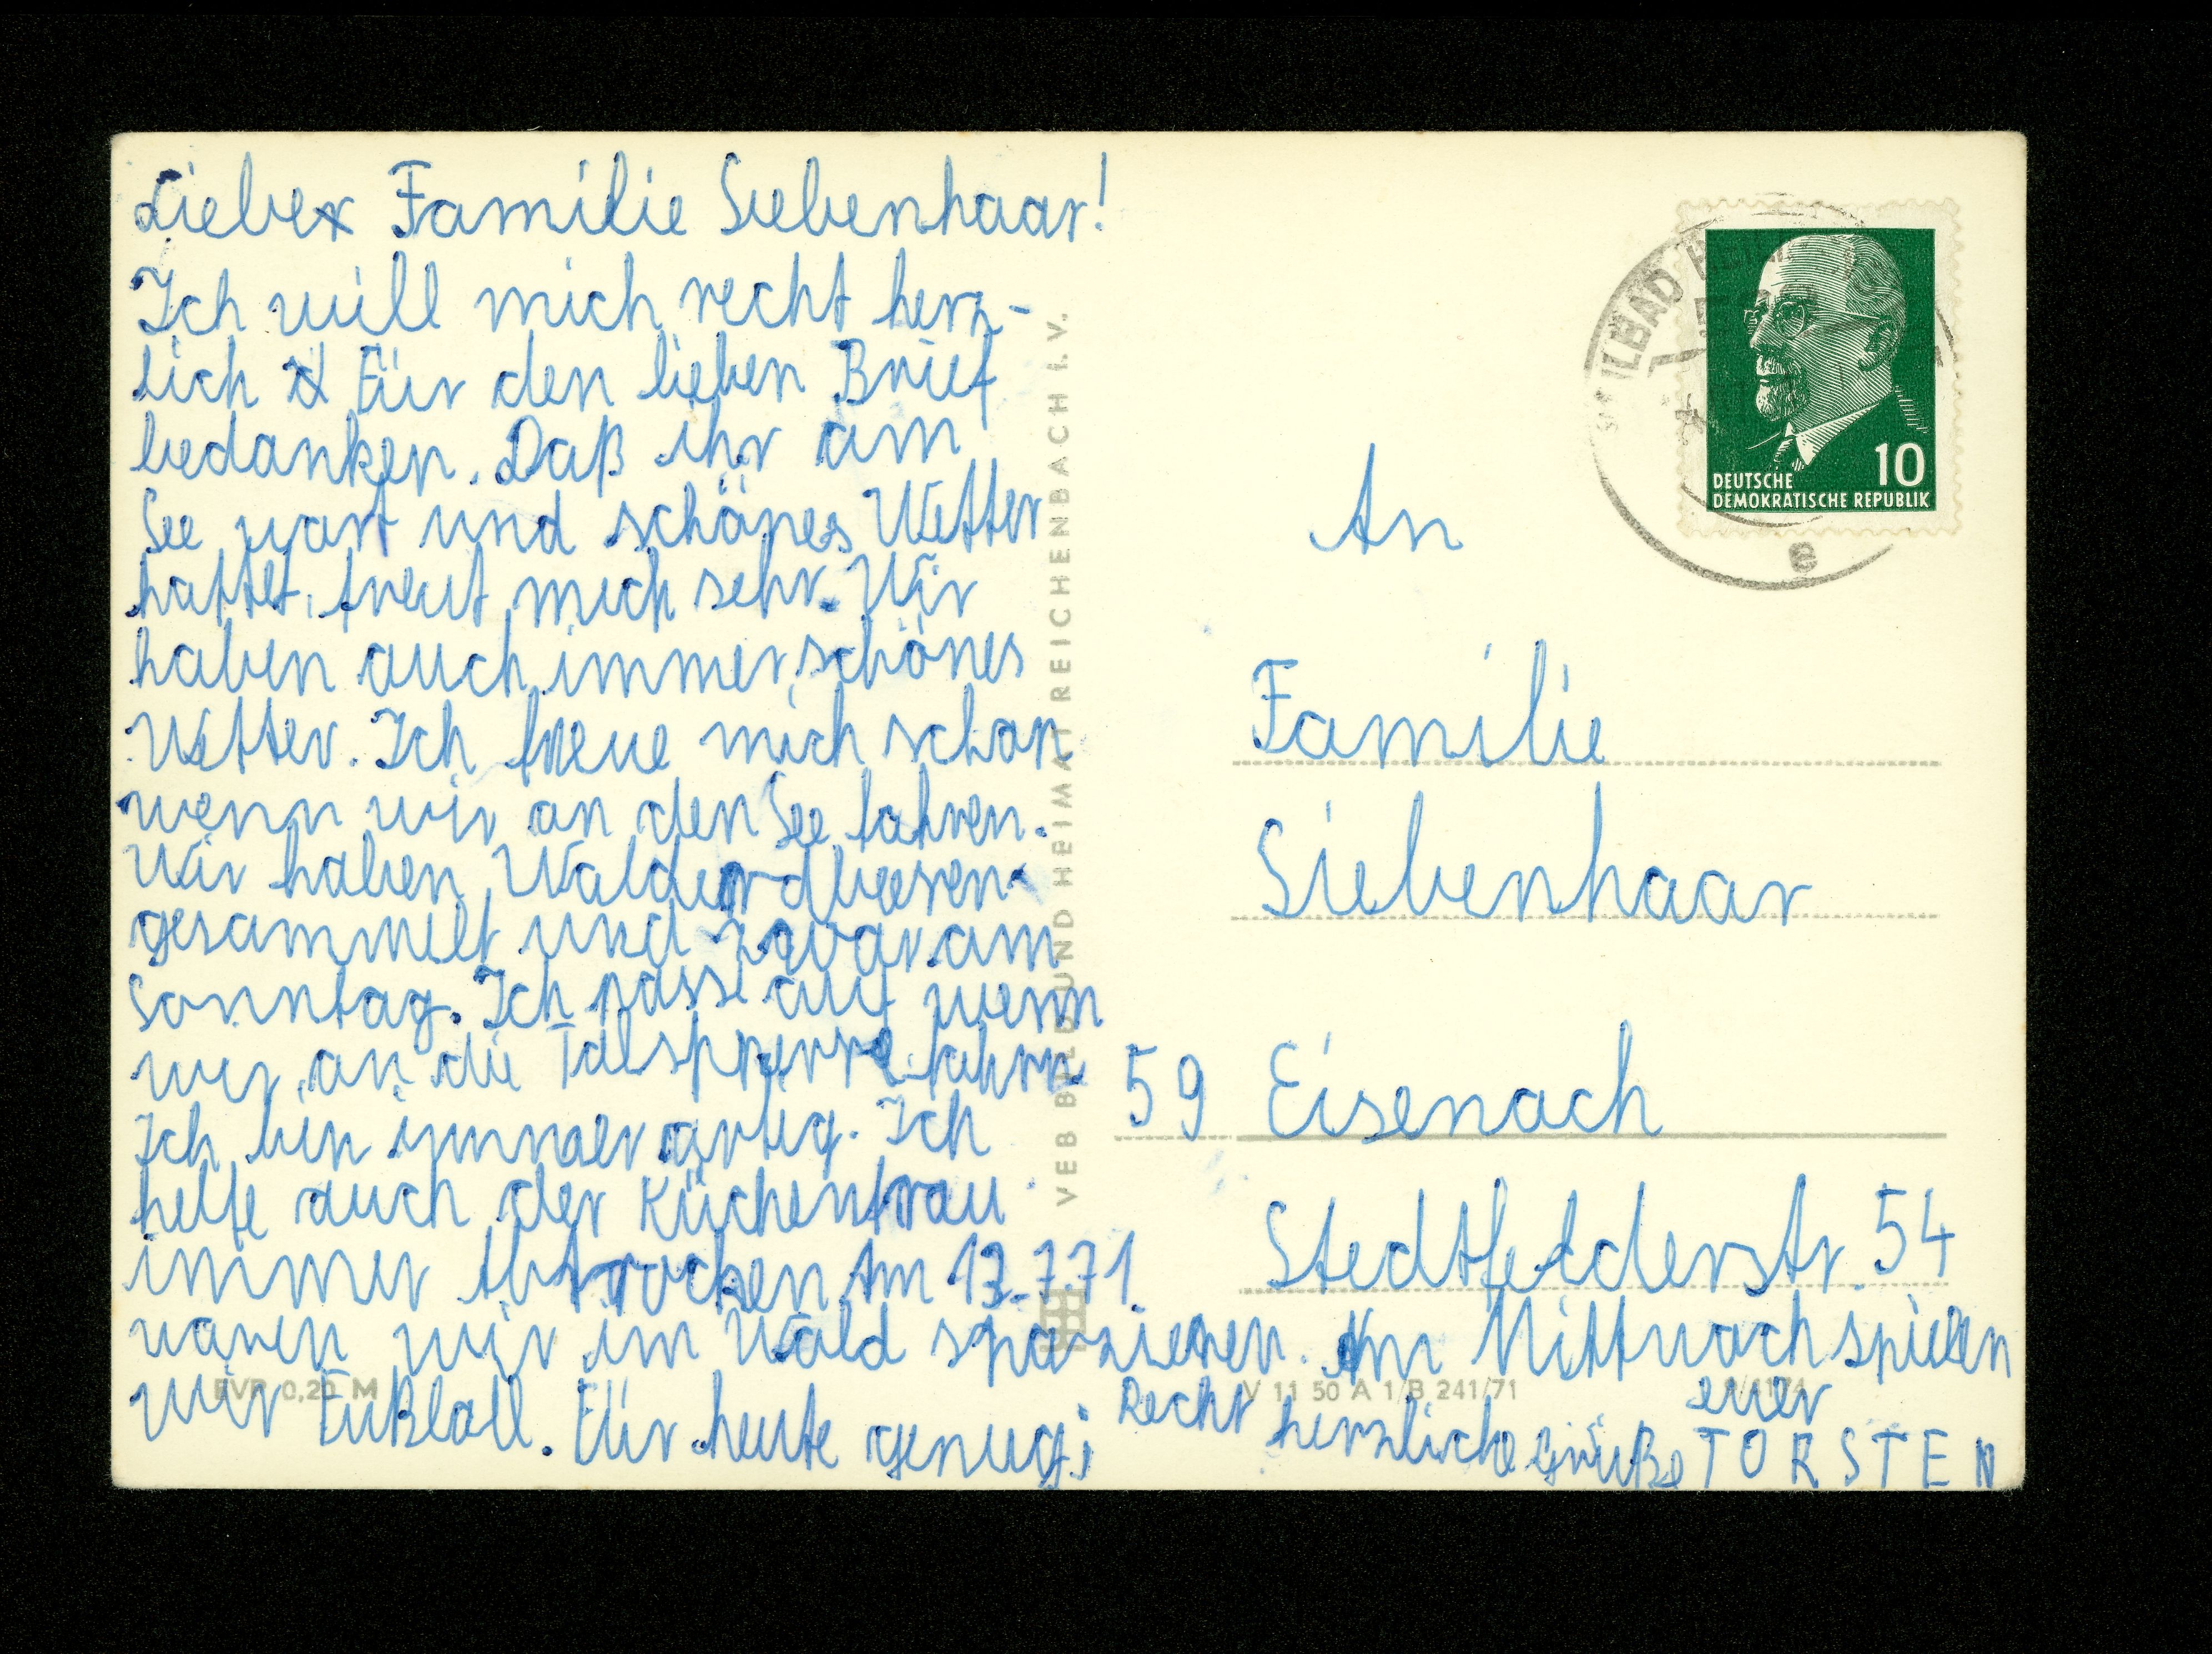 Liebex Familie Siebenhaar!
Ich will mich recht herz-
lich Für den lieben Brief
bedanken. Daß ihr am
See wart und schönes Wetter
hattet, freut mich sehr. Wir
haben auch immer schönes
Wetter. Ich freue mich schon
wenn wir an den See fahren.
Wir haben Walderdbeeren
gesammelt und zwar am
Sonntag. Ich passe auf wenn
wir an die Talsperre fahrn
Ich bin immer artig. Ich
helfe auch der Küchenfrau
immer Abtrocken Am 13.7.71.
waren wir im Wald spazieren. Am Mittwoch spielen
wir Fußball. Für heute genug;
Recht herzliche Grüße
euer
TORSTEN
VEB BILD UND HEIMAT REICHENBACH I. V.
EVP 0,20 M
V 11 50 A 1/B 241/71
DEUTSCHE
DEMOKRATISCHE REPUBLIK
10
e
An
Familie
Siebenhaar
59 Eisenach
Stedtfelderstr. 54